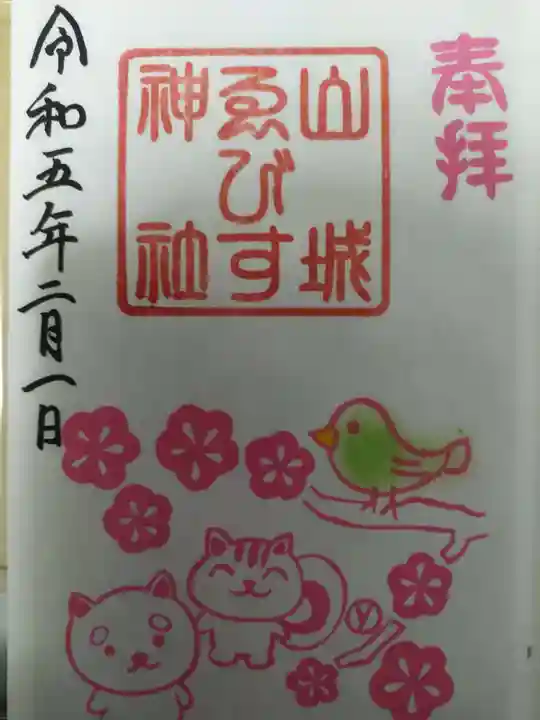 奉拝
山城
ゑびす
神社
令和五年二月一日